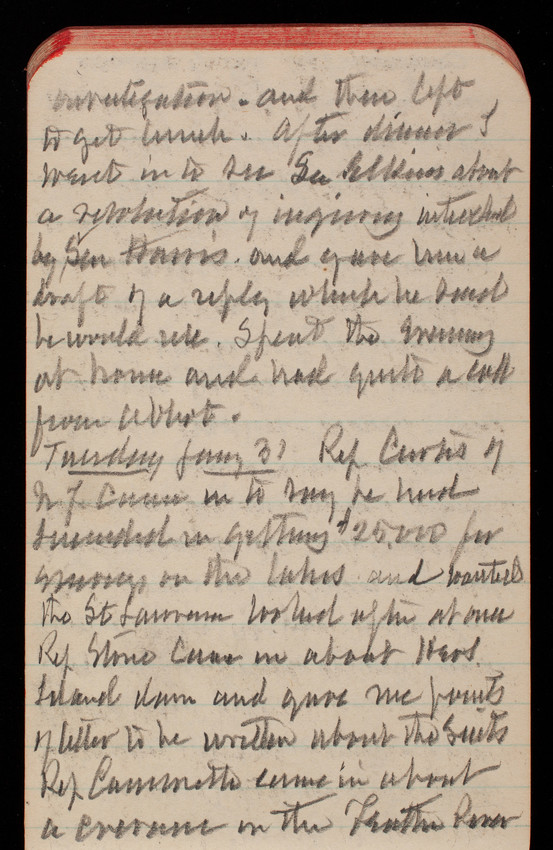 investigation. and then left
to get lunch. After dinner I
went in to see Sen Elkins about
a resolution of inquiry introduced
by Sen Harris. and gave him a
draft of a reply which he said
he would use. Spent the evening
at home and had quite a call
from Abbot.
Tuesday Jany 31 Rep. Curtis of
N.Y. Came in to say he had
succeeded in getting $25,000 for
surveys on the lakes and wanted
the St Lawrence looked after at once
Rep Stone Came in about
Island dam and gave me points
of letter to be written about the Suits
Rep Caminetti came in about
a on the Feather River